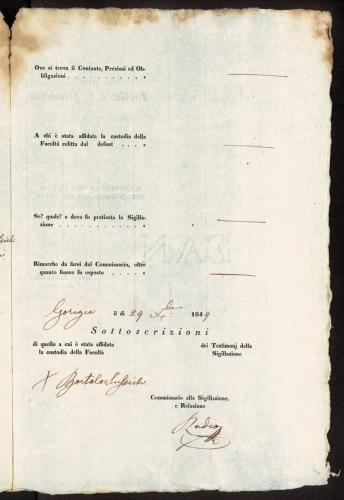 Ove si trova il Contante, Preziosi ed Ob-
bligazioni . . . . . . . . . . «
A chi è stata affidata la custodia della
Facoltà relitta dal defont . . . . «
Se? quale? e dove fu praticata la Sigilla-
zione . . . . . . . . . . . «
Rimarche da farsi dal Commissario, oltre
quanto finora fu esposto . . . . «
Gorizia il dì 29 Xbre 1849
Sottoscrizioni
di quello a cui è stata affidata
la custodia della Facoltà
dei Testimonj della
Sigillazione
X Bortolo
Commissario alla Sigillazione,
e Relazione